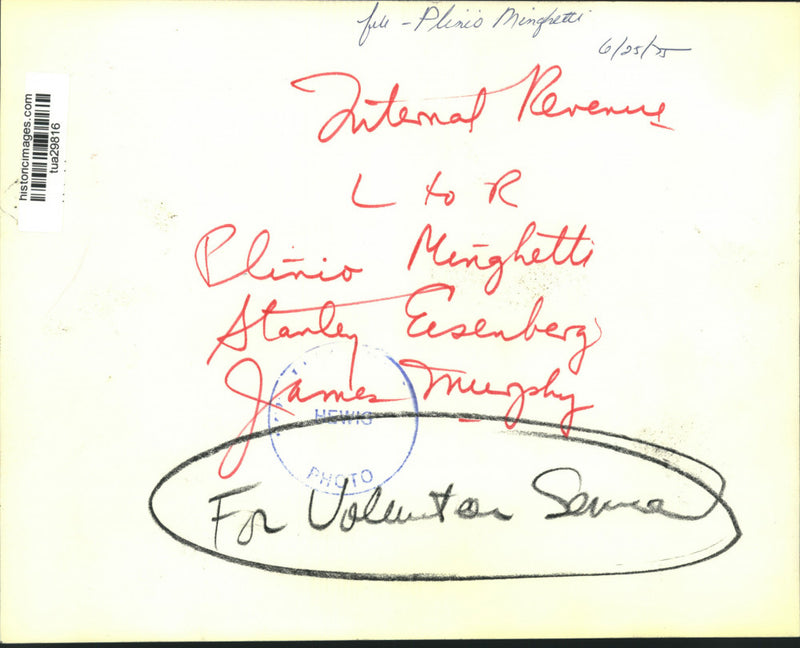 file - Plinio Minghetti
6/25/75
historicimages.com
tua29816
Internal Revenue
L to R
Plinio Minghetti
Stanley Eisenberg
James Murphy
NEWS
PHOTO
For